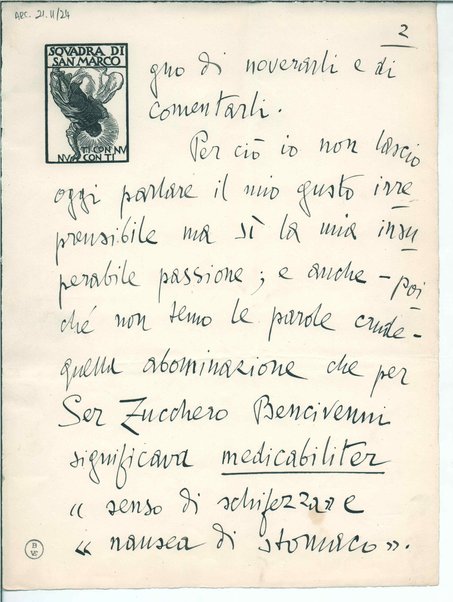 ARC. 21.II/24
2
SQVADRA DI
SAN MARCO
TI CON NV
NV CON TI
gno di noverarli e di
comentarli.
Per ciò io non lascio
oggi parlare il mio gusto irre
prensibile ma sì la mia insu
perabile passione; e anche - poi
ché non temo le parole crude -
quella abominazione che per
Ser Zucchero Bencivenni
significava medicabiliter
« senso di schifezzaz e
« nausea di stomaco».
B
VS